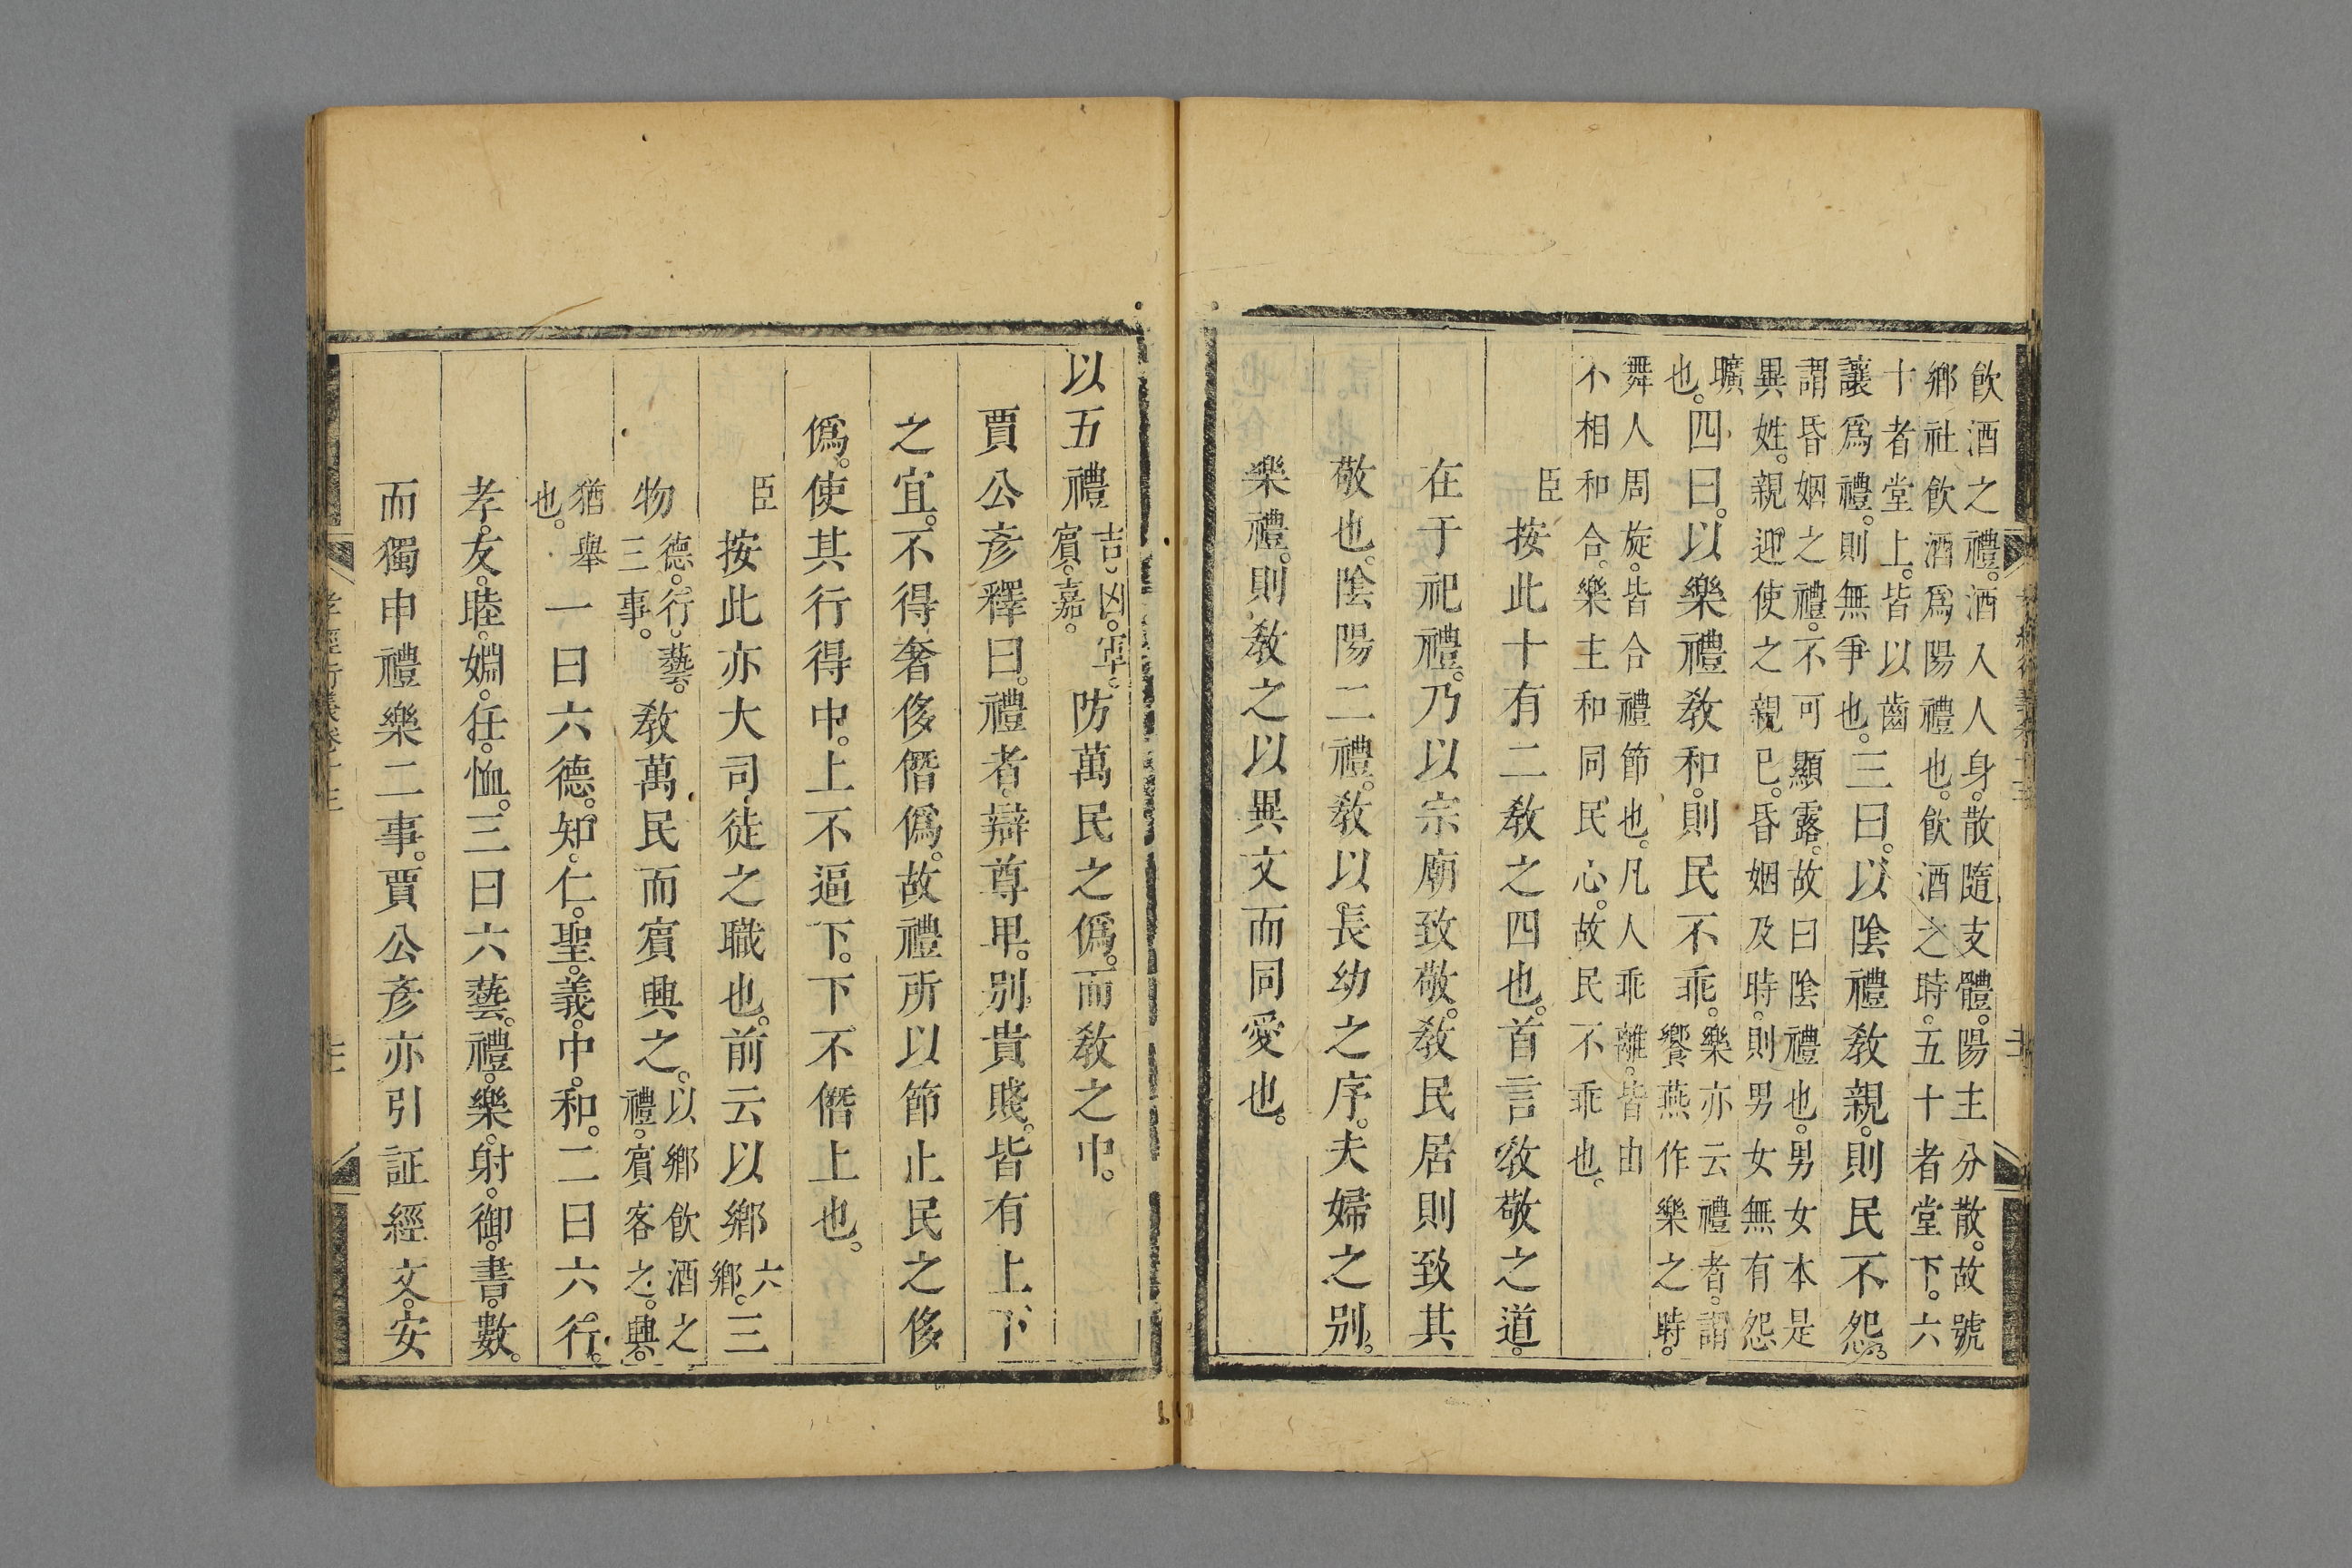 飲酒之禮。酒入人身。散隨支體。陽主分散。故號
鄉社飲酒爲陽禮也。飲酒之時。五十者堂下。六
十者堂上。皆以齒
讓爲禮。則無爭也。三曰。以陰禮教親。則民不怨。
謂昏姻之禮。不可顯露。故曰陰禮也。男女本是
異姓。親迎使之親已。昏姻及時。則男女無有怨
曠
也。四曰。以樂禮教和。則民不乖。樂亦云禮者。謂
饗燕作樂之時。
舞人周旋。皆合禮節也。凡人乖離。皆由
不相和合。樂主和同民心。故民不乖也。
臣按此十有二教之四也。首言教敬之道。
在于祀禮。乃以宗廟致敬。教民居則致其
敬也。陰陽二禮。教以長幼之序。夫婦之别。
樂禮。則教之以異文而同愛也。
以五禮吉。凶。軍。
賓。嘉。防萬民之僞。而教之中。
賈公彥釋曰。禮者。辯尊卑。别貴賤。皆有上下
之宜。不得奢侈僭僞。故禮所以節止民之侈
僞。使其行得中。上不逼下。下不僭上也。
臣按此亦大司徒之職也。前云以鄉六
鄉。三
物德。行。藝。
三事。教萬民而賓興之。以鄉飲酒之
禮。賓客之。興。
猶舉
也。一曰六德。知。仁。聖。義。中。和。二曰六行。
孝。友。睦。婣。任。恤。三曰六藝。禮。樂。射。御。書。數。
而獨申禮樂二事。賈公彥亦引証經文。安